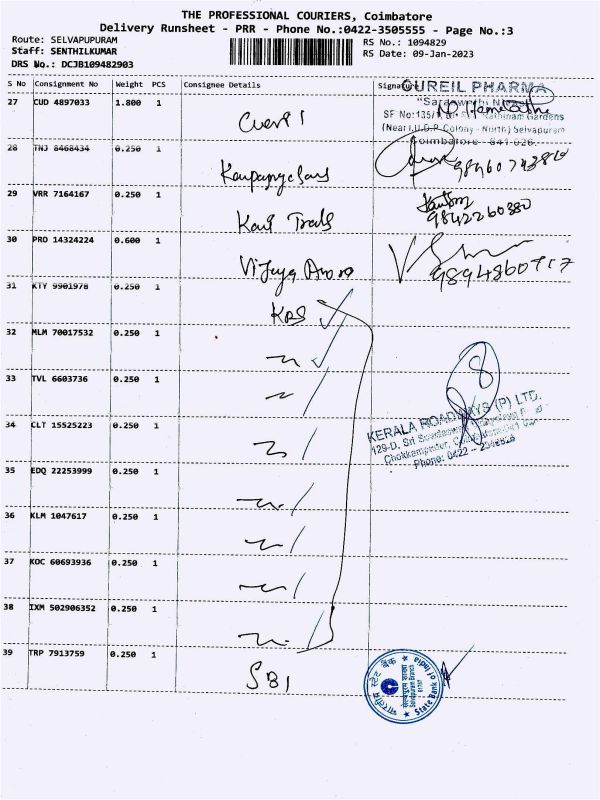 THE PROFESSIONAL COURIERS, Coimbatore
Delivery Runsheet - PRR - Phone No.:0422-3505555 - Page No.:3
Route: SELVAPUPURAM
Staff: SENTHILKUMAR
DRS No.: DCJB109482903
RS No.: 1094829
RS Date: 09-Jan-2023
S No Consignment No Weight PCS Consignee Details Signa
OUREIL PHARMA
27 CUD 4897033 1.800 1
SF No:135/1, Rathinam Gardens
(Near I.U.D.P Colony - North) Selvapuram
Coimbatore - 641 026.
28 TNJ 8468434 0.250 1
29 VRR 7164167 0.250 1
9842260380
30 PRD 14324224 0.600 1 Vijaya
31 KTY 9901978 0.250 1 KRS
32 MLM 70017532 0.250 1
33 TVL 6603736 0.250 1
8
34 CLT 15525223 0.250 1
KERALA ROADWAYS (P) LTD.
129-D, Sri
Phone: 0422 -
35 EDQ 22253999 0.250 1
36 KLM 1047617 0.250 1
37 KOC 60693936 0.250 1
38 IXM 502906352 0.250 1
39 TRP 7913759 0.250 1 SBI
भारतीय स्टेट बैंक
State Bank of India